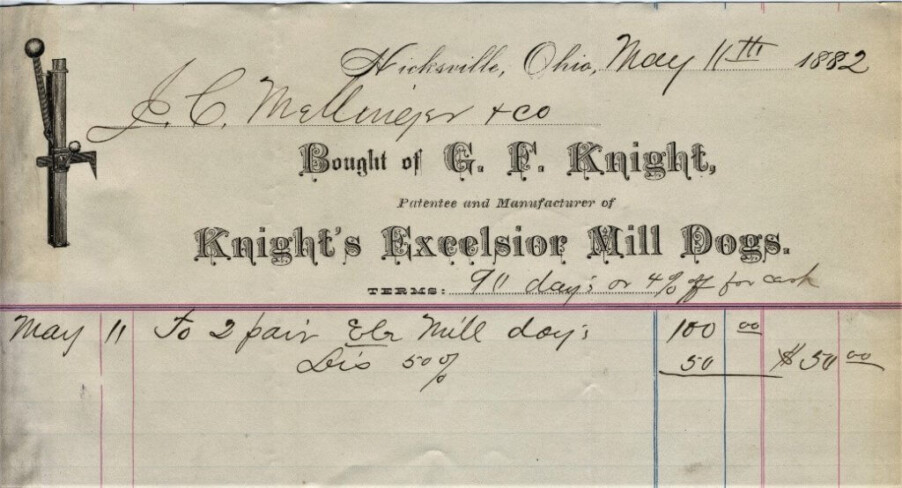 Hicksville, Ohio, May 11th 1882
J. C. Mellinger & co
Bought of G. F. Knight,
Patentee and Manufacturer of
Knight's Excelsior Mill Dogs.
TERMS: 90 days or 4% off for cash
May 11 To 2 pair Mill dogs 100 00
Dis 50% 50 $50 00